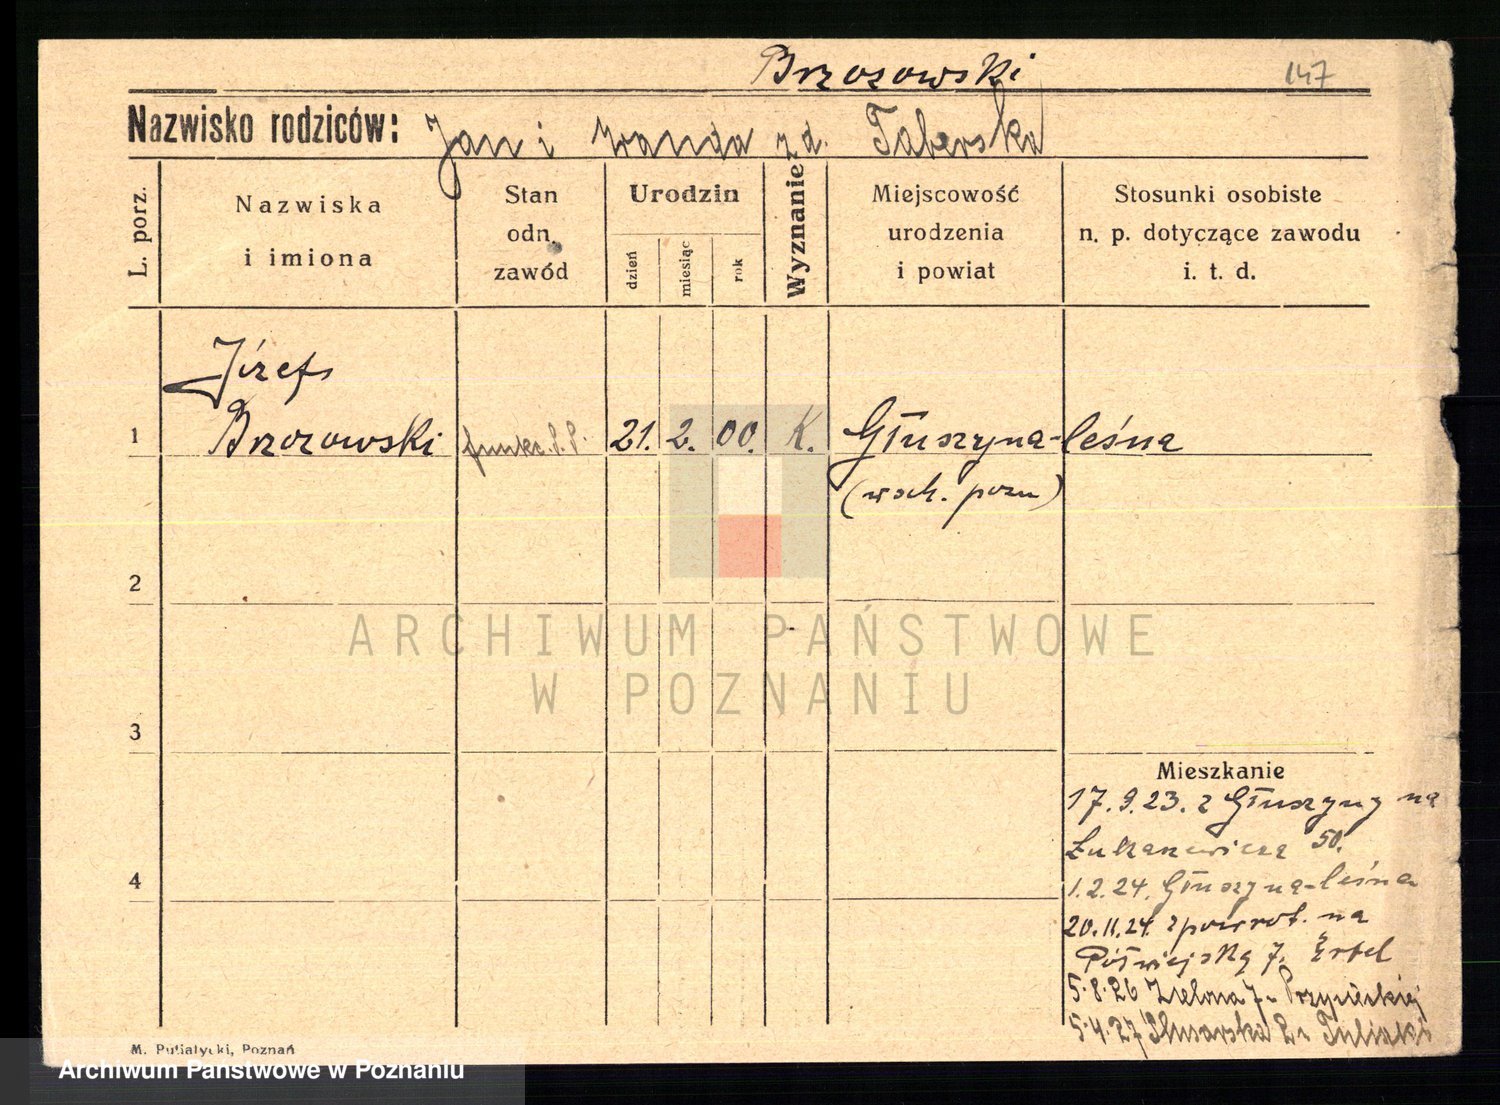 Brzozowski
147
Nazwisko rodziców: Jan i Wanda zd. Taberska
L. porz.
Nazwiska
i imiona
Stan
odn.
zawód
Urodzin
dzień
miesiąc
rok
Wyznanie
Miejscowość
urodzenia
i powiat
Stosunki osobiste
n. p. dotyczące zawodu
i. t. d.
Józef
1 Brzozowski 21. 2. 00. K. Głuszyna-leśna
(wsch. pozn)
2
ARCHIWUM PAŃSTWOWE
W POZNANIU
3
Mieszkanie
17.9.23. z Głuszyny na
Łukaszewicza 50.
4
1.2.24. Głuszyna-leśna
20.11.24. zpowrot. na
Półwiejską 7. Ertel
5.8.26 Zielona 7
5.4.27 Ślusarska 2
M. Putiatycki, Poznań
Archiwum Państwowe w Poznaniu